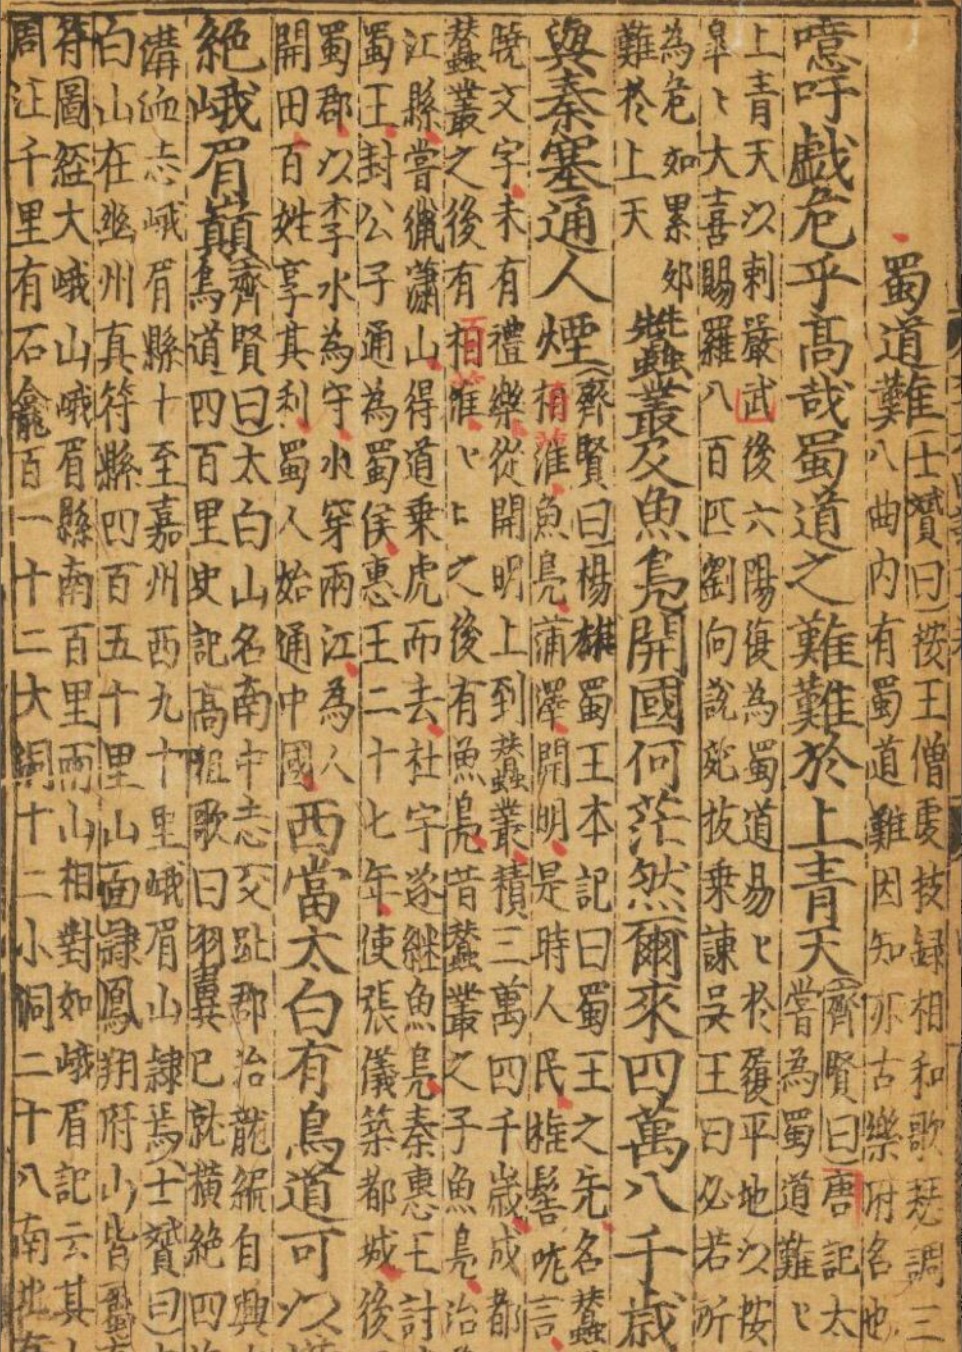 蜀道難
士贇曰按王僧虔技録相和歌瑟調三
八曲内有蜀道難因知亦古樂府名也
噫吁戲危乎高哉蜀道之難難於上青天
齊賢曰唐記太
嘗為蜀道難〻
上青天以刺嚴武後六陽復為蜀道易〻於履平地以按
皐〻大喜賜羅八百匹劉向説苑枚乗諫吳王曰必若所
為危如累夘
難於上天
蠶叢及魚鳧開國何茫然爾來四萬八千歳
與秦塞通人煙
齊賢曰楊雄蜀王本記曰蜀王之先名蠶
栢濩魚鳧蒲澤開明是時人民椎髻咙言
曉文字未有禮樂從開明上到蠶叢積三萬四千歳成都
蠶叢之後有栢濩〻〻之後有魚鳧昔蠶叢之子魚鳧治
江縣嘗獵瀟山得道乗虎而去杜宇遂継魚鳧秦惠王討
蜀王封公子通為蜀侯惠王二十七年使張儀築都城後
蜀郡以李水為守水穿兩江為人
開田百姓享其利蜀人始通中國
西當太白有鳥道可以
絶峨眉巔
齊賢曰太白山名南中志交趾郡治龍編自興
鳥道四百里史記高祖歌曰羽翼已就横絶四
溝洫志峨眉縣十至嘉州西九十里峨眉山隷焉士贇曰
白山在幽州真符縣四百五十里山面隷鳳翔府山皆
符圖經大峨山峨眉縣南百里兩山相對如峨眉記云其
周迊千里有石龕百一十二大洞十二小洞二十八南北